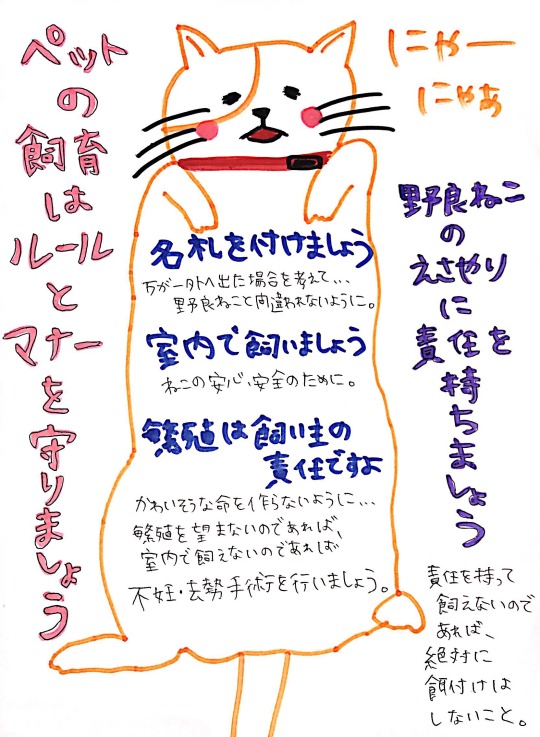 ペット
の
飼育
は
ルール
と
マナー
を
守りましょう
にゃー
にゃあ
名札を付けましょう
万が一外へ出た場合を考えて...
野良ねこと間違われないように。
室内で飼いましょう
ねこの安心、安全のために。
繁殖は飼い主の
責任ですよ
かわいそうな命を作らないように...
繁殖を望まないのであれば、
室内で飼えないのであれば
不妊・去勢手術を行いましょう。
野良ねこ
の
えさやり
に
責任を
持ちましょう
責任を持って
飼えないので
あれば、
絶対に
餌付けは
しないこと。